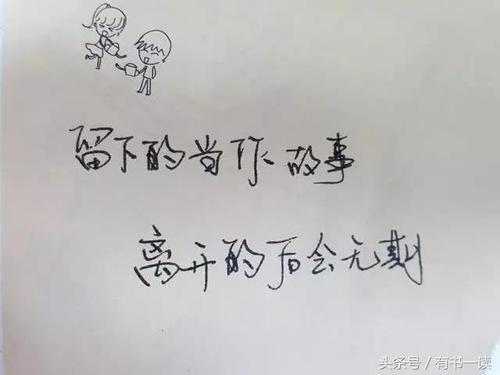 留下的当作故事
离开的后会无期
头条号/有书一读